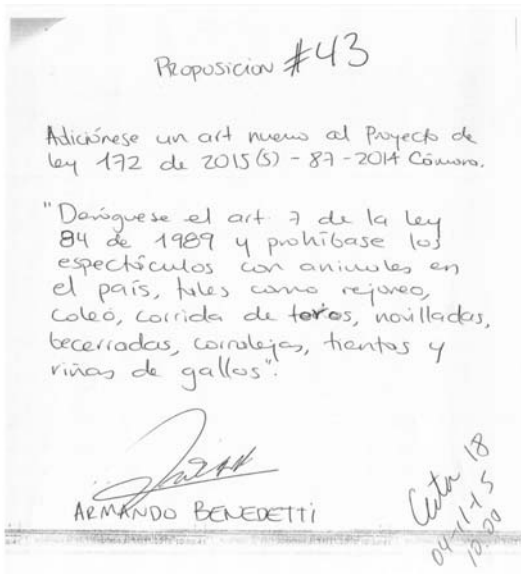 PROPOSICION #43
Adiciónese un art nuevo al Proyecto de
ley 172 de 2015(S) - 87-2014 Cámara.
"Deróguese el art. 7 de la ley
84 de 1989 y prohíbase los
espectáculos con animales en
el país, tales como rejoneo,
coleo, corrida de toros, novilladas,
becerradas, corralejas, tientas y
riñas de gallos".
ARMANDO BENEDETTI
18
04-11-15
10:00